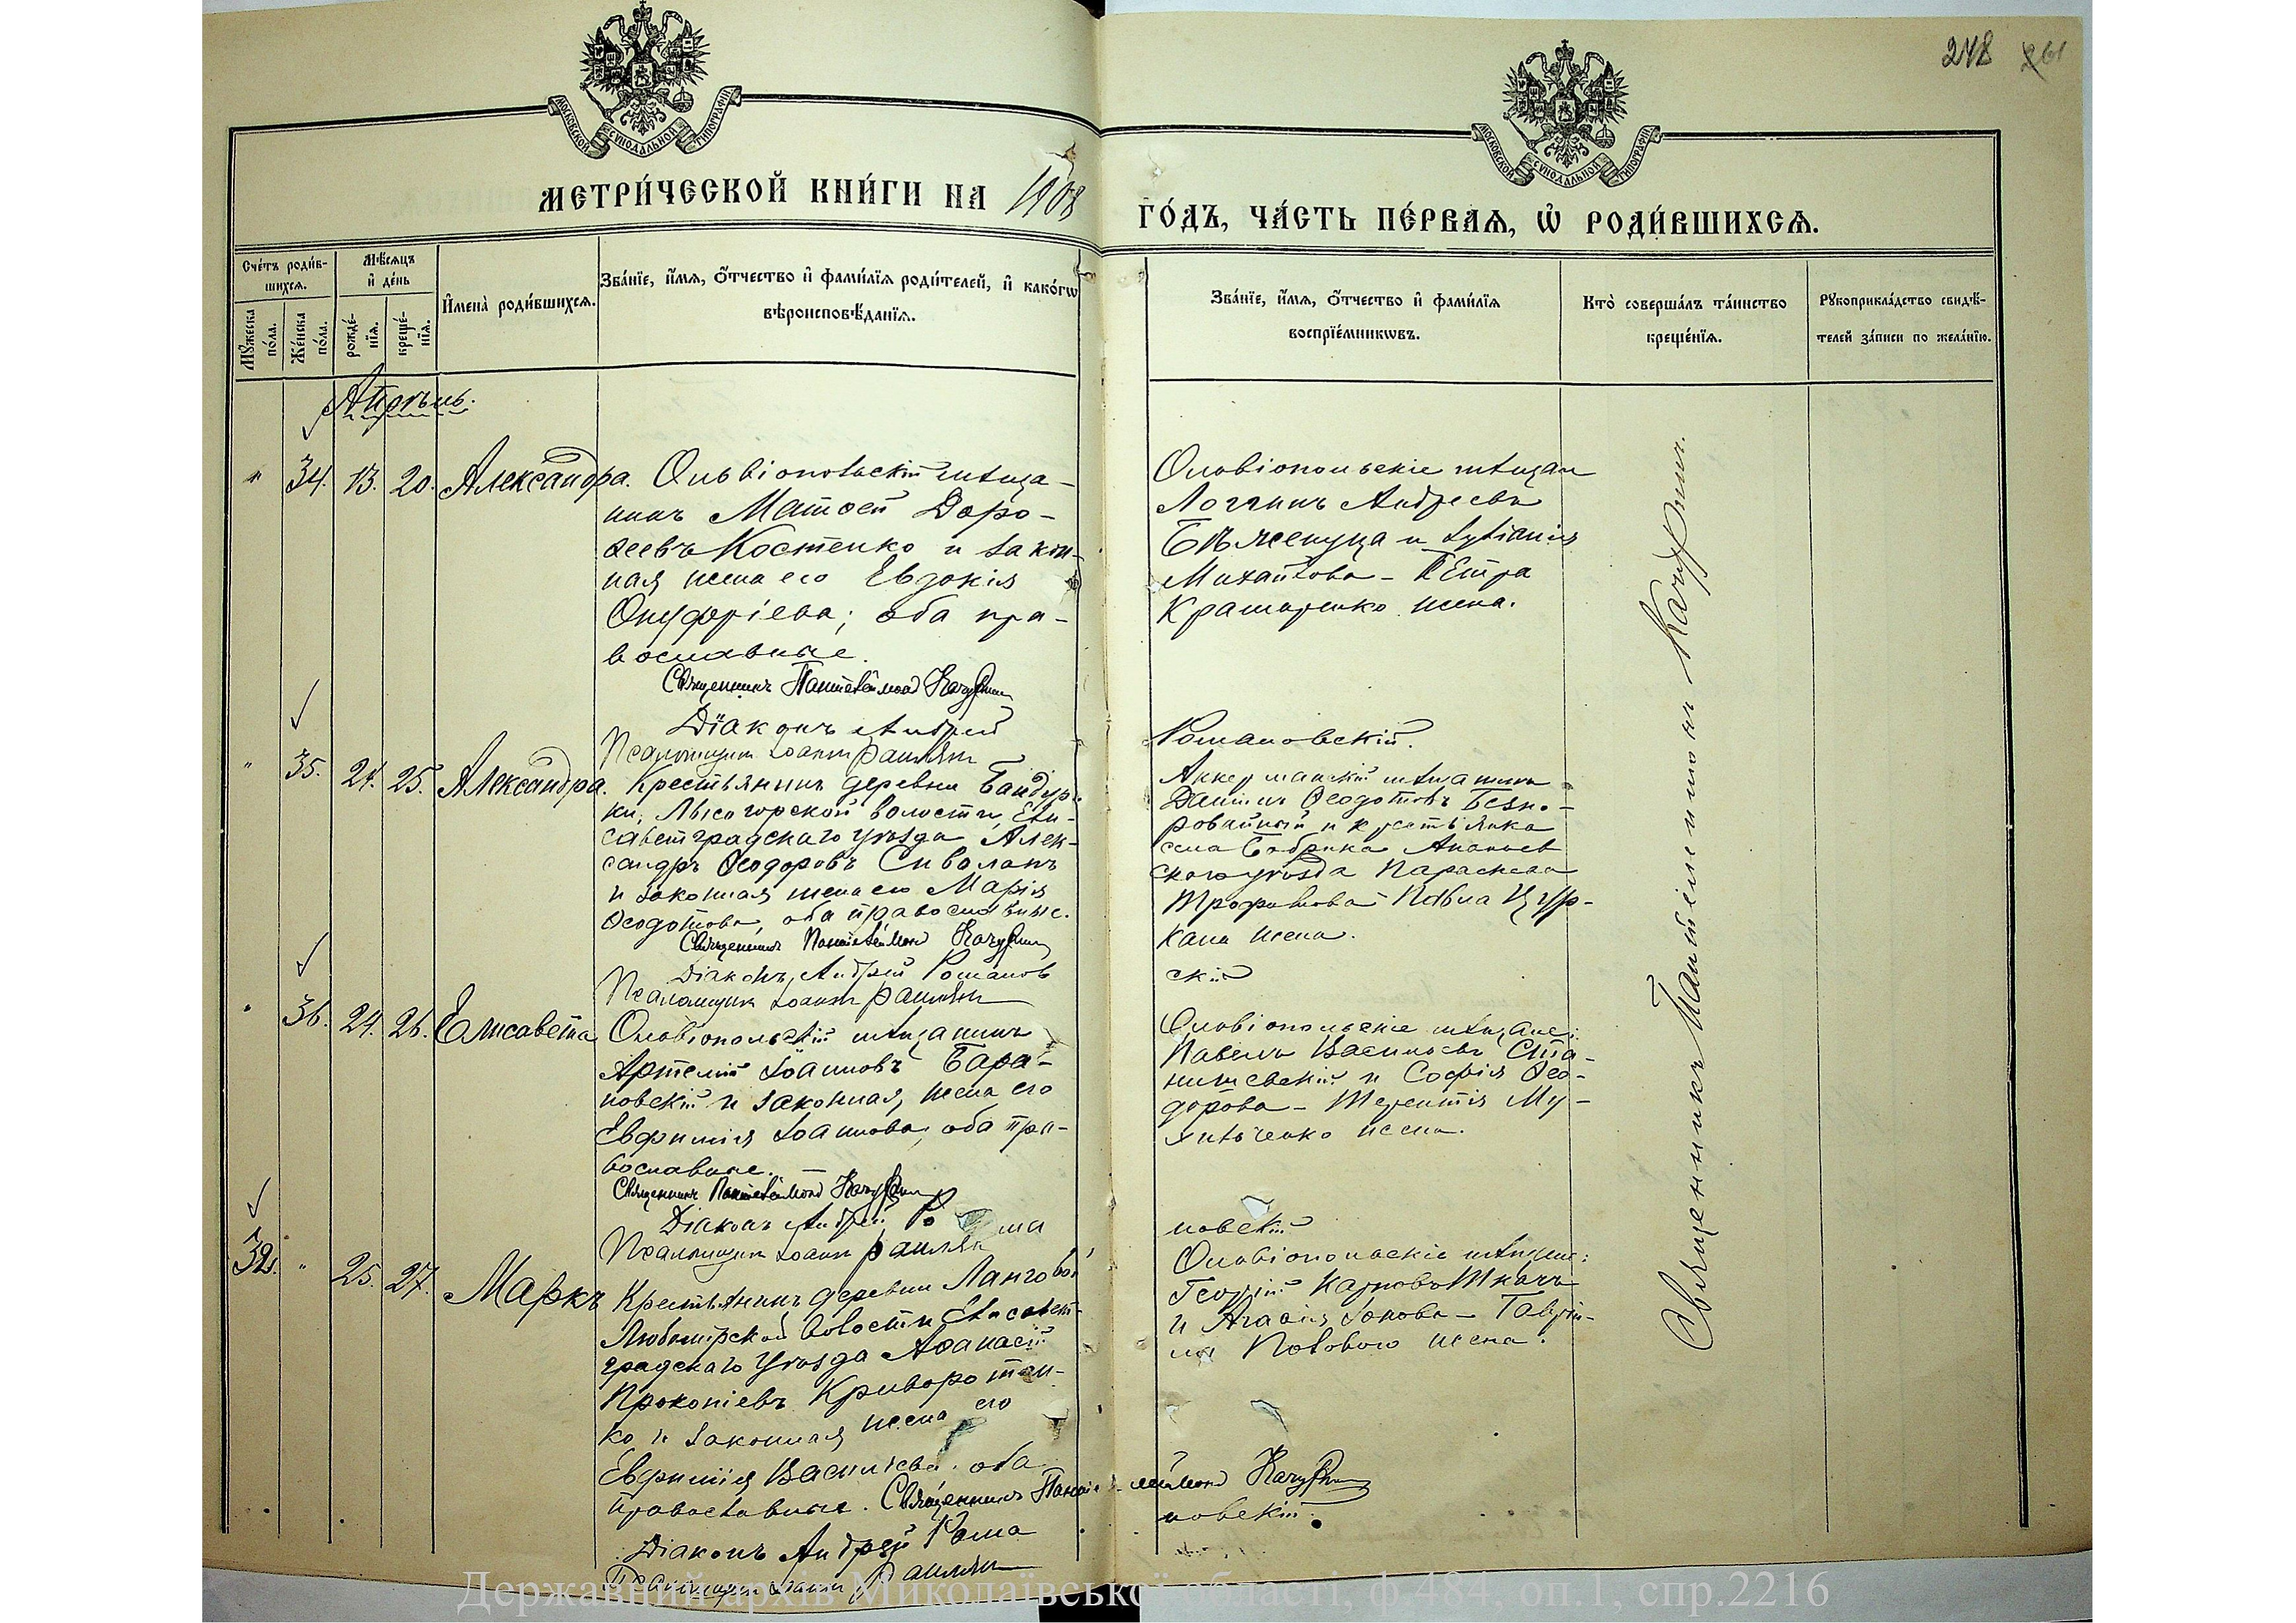 248 261
МОСКОВСКОЙ СѴНОДАЛЬНОЙ ТИПОГРАФІИ
МОСКОВСКОЙ СѴНОДАЛЬНОЙ ТИПОГРАФІИ
МЕТРИ́ЧЕСКОЙ КНИ́ГИ НА 1908
ГО́ДЪ, ЧА́СТЬ ПЕ́РВАѦ, Ѡ҆ РОДИ́ВШИХСѦ.
Сче́тъ роди́в-
шихсѧ.
Мꙋ́жеска
по́ла.
Же́нска
по́ла.
Мѣ́сѧцъ
и҆ де́нь
рожде́-
нїѧ.
креще́-
нїѧ.
И҆мена̀ роди́вшихсѧ.
Зва́нїе, и҆́мѧ, ѻ҆́тчество и҆ фами́лїѧ роди́телей, и҆ како́гѡ
вѣроисповѣ́данїѧ.
Зва́нїе, и҆́мѧ, ѻ҆́тчество и҆ фами́лїѧ
воспрїе́мникѡвъ.
Кто̀ соверша́лъ та́инство
креще́нїѧ.
Рꙋкоприкла́дство свидѣ́-
телей за́писи по жела́нїю.
Апрѣль.
" 34. 13. 20. Александра. Ольвіопольскій мѣща-
нинъ Матѳей Доро-
ѳеевъ Костенко и закон-
ная жена его Евдокія
Онуфріева; оба пра-
вославные.
Священникъ Пантелеймонъ
Діаконъ Андрей
Псаломщикъ Іоаннъ
Ольвіопольскіе мѣщан
Логгинъ Андреевъ
и
Михайлова - Петра
Крамаренко жена.
Романовскій.
" 35. 24. 25. Александра. Крестьянинъ деревни Бандур-
ки, Лысогорской волости, Ели-
саветградскаго уѣзда Алек-
сандръ Ѳеодоровъ Сиволапъ
и законная жена его Марія
Ѳеодотова, оба православные.
Священникъ Пантелеймонъ
Діаконъ Андрей Романов
Псаломщикъ Іоаннъ
Аккерманскій мѣщанинъ
Ѳеодотовъ Безко-
ровайный и крестьянка
села Бобрика Ананьев
скаго уѣзда Параскева
Трофимова Павла Цур-
кана жена.
скій
" 36. 24. 26. Елисавета Ольвіопольскій мѣщанинъ
Артемій Іоанновъ Бара-
новскій и законная жена его
Евфимія Іоаннова, оба пра-
вославные.
Священникъ Пантелеймонъ
Діаконъ Андрей Рома
Псаломщикъ Іоаннъ
Ольвіопольскіе мѣщане:
Павелъ Васильевъ Ста-
нишевскій и Софія Ѳео-
дорова - Терентія Му-
жена.
новскій
32. " 25. 27. Маркъ Крестьянинъ деревни Ланговой
Любомірской волости Елисавет-
градскаго уѣзда Аѳанасій
Прокопіевъ Криворотен-
ко и законная жена его
Евфимія Васильева оба
православные. Священникъ Пантелеймонъ
Діаконъ Андрей Рома
Псаломщикъ Іоаннъ
Ольвіопольскіе мѣщане:
Георгій Карповъ Ткачъ
и Агаѳія Іонова - Гаврі-
ила жена.
новскій.
Священникъ Пантелеймонъ
Державний архів Миколаївської області, ф.484, оп.1, спр.2216